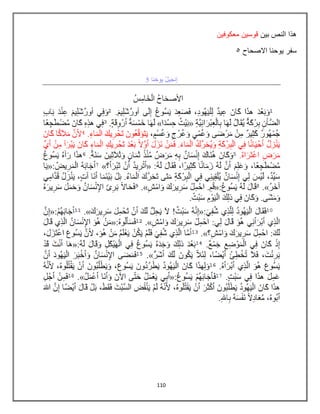 هذا النص بين قوسين معكوفين
سفر يوحنا الاصحاح ٥
إنجيل يوحنا 5
اَلأَصْحَاحُ الْخَامِسُ
1وَبَعْدَ هذَا كَانَ عِيدٌ لِلْيَهُودِ، فَصَعِدَ يَسُوعُ إِلَى أُورُشَلِيمَ. 2وَفِي أُورُشَلِيمَ عِنْدَ بَابِ
الضَّأْنِ بِرْكَةٌ يُقَالُ لَهَا بِالْعِبْرَانِيَّةِ «بَيْتُ حِسْدَا» لَهَا خَمْسَةُ أَرْوِقَةٍ. 3فِي هذِهِ كَانَ مُضْطَجِعًا
جُمْهُورٌ كَثِيرٌ مِنْ مَرْضَى وَعُمْيٍ وَعُرْجٍ وَعُسْمٍ، يَتَوَقَّعُونَ تَحْرِيكَ الْمَاءِ. 4لأَنَّ مَلاَكًا كَانَ
يَنْزِلُ أَحْيَانًا فِي الْبِرْكَةِ وَيُحَرِّكُ الْمَاءَ. فَمَنْ نَزَلَ أَوَّلاً بَعْدَ تَحْرِيكِ الْمَاءِ كَانَ يَبْرَأُ مِنْ أَيِّ
مَرَضٍ اعْتَرَاهُ. 5وَكَانَ هُنَاكَ إِنْسَانٌ بِهِ مَرَضٌ مُنْذُ ثَمَانٍ وَثَلاَثِينَ سَنَةً. 6هذَا رَآهُ يَسُوعُ
مُضْطَجِعًا، وَعَلِمَ أَنَّ لَهُ زَمَانًا كَثِيرًا، فَقَالَ لَهُ: «أَتُرِيدُ أَنْ تَبْرَأَ؟» 7أَجَابَهُ الْمَرِيضُ: «يَا
سَيِّدُ، لَيْسَ لِي إِنْسَانٌ يُلْقِينِي فِي الْبِرْكَةِ مَتَى تَحَرَّكَ الْمَاءُ. بَلْ بَيْنَمَا أَنَا آتٍ، يَنْزِلُ قُدَّامِي
آخَرُ». 8قَالَ لَهُ يَسُوعُ: «قُمِ. احْمِلْ سَرِيرَكَ وَامْشِ». 9فَحَالاً بَرِئَ الإِنْسَانُ وَحَمَلَ سَرِيرَهُ
وَمَشَى. وَكَانَ فِي ذلِكَ الْيَوْمِ سَبْتٌ.
10فَقَالَ الْيَهُودُ لِلَّذِي شُفِيَ: «إِنَّهُ سَبْتٌ! لاَ يَحِلُّ لَكَ أَنْ تَحْمِلَ سَرِيرَكَ». 11أَجَابَهُمْ: «إِنَّ
الَّذِي أَبْرَأَنِي هُوَ قَالَ لِي: احْمِلْ سَرِيرَكَ وَامْشِ». 12فَسَأَلُوهُ: «مَنْ هُوَ الإِنْسَانُ الَّذِي قَالَ
لَكَ: احْمِلْ سَرِيرَكَ وَامْشِ؟». 13أَمَّا الَّذِي شُفِيَ فَلَمْ يَكُنْ يَعْلَمُ مَنْ هُوَ، لأَنَّ يَسُوعَ اعْتَزَلَ،
إِذْ كَانَ فِي الْمَوْضِعِ جَمْعٌ. 14بَعْدَ ذلِكَ وَجَدَهُ يَسُوعُ فِي الْهَيْكَلِ وَقَالَ لَهُ: «هَا أَنْتَ قَدْ
بَرِئْتَ، فَلاَ تُخْطِئْ أَيْضًا، لِئَلاَّ يَكُونَ لَكَ أَشَرُّ». 15فَمَضَى الإِنْسَانُ وَأَخْبَرَ الْيَهُودَ أَنَّ
يَسُوعَ هُوَ الَّذِي أَبْرَأَهُ. 16وَلِهذَا كَانَ الْيَهُودُ يَطْرُدُونَ يَسُوعَ، وَيَطْلُبُونَ أَنْ يَقْتُلُوهُ، لأَنَّهُ
عَمِلَ هذَا فِي سَبْتٍ. 17فَأَجَابَهُمْ يَسُوعُ: «أَبِي يَعْمَلُ حَتَّى الآنَ وَأَنَا أَعْمَلُ». 18فَمِنْ أَجْلِ
هذَا كَانَ الْيَهُودُ يَطْلُبُونَ أَكْثَرَ أَنْ يَقْتُلُوهُ، لأَنَّهُ لَمْ يَنْقُضِ السَّبْتَ فَقَطْ، بَلْ قَالَ أَيْضًا إِنَّ اللهَ
أَبُوهُ، مُعَادِلاً نَفْسَهُ بِاللهِ.
110